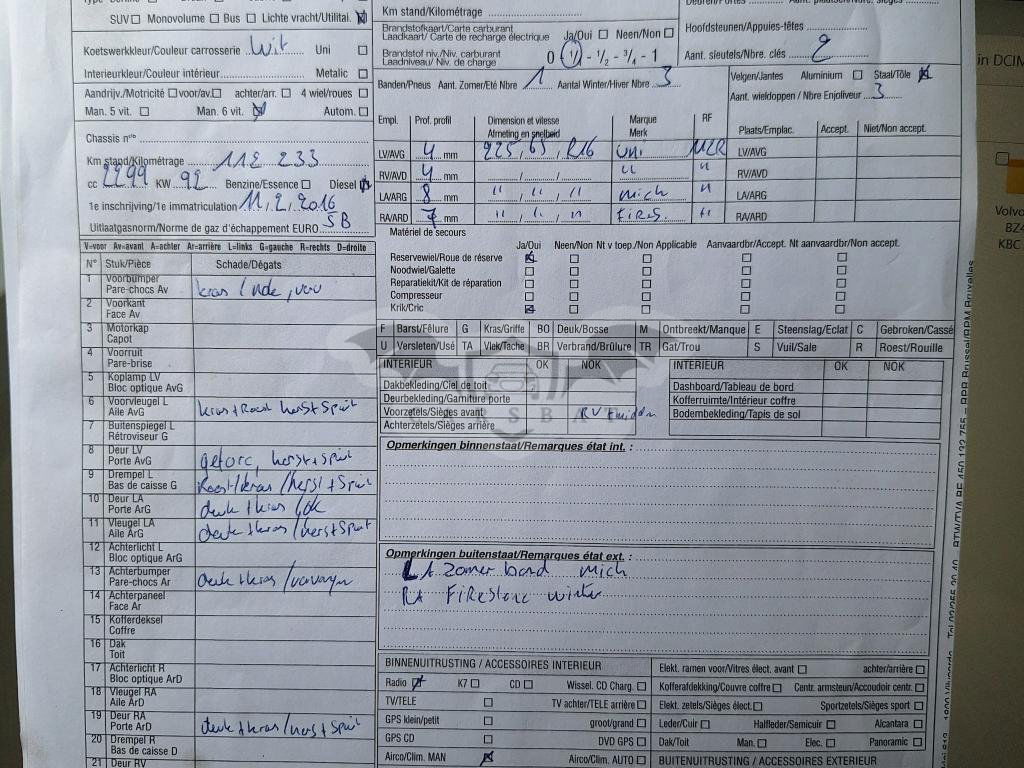 SUV Monovolume Bus Lichte vracht/Utilital.
Koetswerkkleur/Couleur carrosserie Wit Uni
Interieurkleur/Couleur intérieur Metalic
Aandrijv./Motricité voor/av. achter/arr. 4 wiel/roues
Man. 5 vit. Man. 6 vit. Autom.
Chassis nrs/os
Km stand/Kilométrage 112 233
cc 2299 KW 92 Benzine/Essence Diesel
1e inschrijving/1e immatriculation 11, 2, 2016
Uitlaatgasnorm/Norme de gaz d'échappement EURO 5B
V=voor Av=avant A=achter Ar=arrière L=links G=gauche R=rechts D=droite
N° Stuk/Pièce Schade/Dégats
1 Voorbumper
Pare-chocs Av kras
2 Voorkant
Face Av
3 Motorkap
Capot
4 Voorruit
Pare-brise
5 Koplamp LV
Bloc optique AvG
6 Voorvleugel L
Aile AvG kras + Roest herst + spuit
7 Buitenspiegel L
Rétroviseur G
8 Deur LV
Porte AvG geforc, herst + spuit
9 Drempel L
Bas de caisse G Roest/kras/herst + spuit
10 Deur LA
Porte ArG deuk + kras / ok
11 Vleugel LA
Aile ArG deuk + kras / herst + spuit
12 Achterlicht L
Bloc optique ArG
13 Achterbumper
Pare-chocs Ar deuk + kras /
14 Achterpaneel
Face Ar
15 Kofferdeksel
Coffre
16 Dak
Toit
17 Achterlicht R
Bloc optique ArD
18 Vleugel RA
Aile ArD
19 Deur RA
Porte ArD deuk + kras / herst + spuit
20 Drempel R
Bas de caisse D
21 Deur RV
Km stand/Kilométrage
Brandstofkaart/Carte carburant
Laadkaart/ Carte de recharge électrique Ja/Oui Neen/Non
Brandstof niv./Niv. carburant
Laadniveau/ Niv. de charge 0 - 1/4 - 1/2 - 3/4 - 1
Hoofdsteunen/Appuies-têtes
Aant. sleutels/Nbre. clés 2
Banden/Pneus Aant. Zomer/Eté Nbre 1 Aantal Winter/Hiver Nbre 3
Velgen/Jantes Aluminium Staal/Tôle
Aant. wieldoppen / Nbre Enjoliveur 3
Empl. Prof. profil Dimension et vitesse Marque RF
Afmeting en snelheid Merk
LV/AVG 4 mm 225, 65, R16 uni
RV/AVD 4 mm " "
LA/ARG 8 mm " " " mich "
RA/ARD 7 mm " " " fires. "
Plaats/Emplac. Accept. Niet/Non accept.
LV/AVG
RV/AVD
LA/ARG
RA/ARD
Matériel de secours
Ja/Oui Neen/Non Nt v toep./Non Applicable Aanvaardbr/Accept. Nt aanvaardbr/Non accept.
Reservewiel/Roue de réserve
Noodwiel/Galette
Reparatiekit/Kit de réparation
Compresseur
Krik/Cric
F Barst/Fêlure G Kras/Griffe BO Deuk/Bosse M Ontbreekt/Manque E Steenslag/Eclat C Gebroken/Cassé
U Versleten/Usé TA Vlek/Tache BR Verbrand/Brûlure TR Gat/Trou S Vuil/Sale R Roest/Rouille
INTERIEUR OK NOK
Dakbekleding/Ciel de toit
Deurbekleding/Garniture porte
Voorzetels/Sièges avant RV
Achterzetels/Sièges arrière
INTÉRIEUR OK NOK
Dashboard/Tableau de bord
Kofferruimte/Intérieur coffre
Bodembekleding/Tapis de sol
Opmerkingen binnenstaat/Remarques état int. :
Opmerkingen buitenstaat/Remarques état ext. :
LA zomer band mich
RA Firestone winter
BINNENUITRUSTING / ACCESSOIRES INTERIEUR
Radio K7 CD Wissel. CD Charg.
TV/TELE TV achter/TELE arrière
GPS klein/petit groot/grand
GPS CD DVD GPS
Airco/Clim. MAN Airco/Clim. AUTO
Elekt. ramen voor/Vitres élect. avant achter/arrière
Kofferafdekking/Couvre coffre Centr. armsteun/Accoudoir centr.
Elekt. zetels/Sièges élect. Sportzetels/Sièges sport
Leder/Cuir Halfleder/Semicuir Alcantara
Dak/Toit Man. Elec. Panoramic
BUITENUITRUSTING / ACCESSOIRES EXTERIEUR
in DCIM
Volvo
KBC